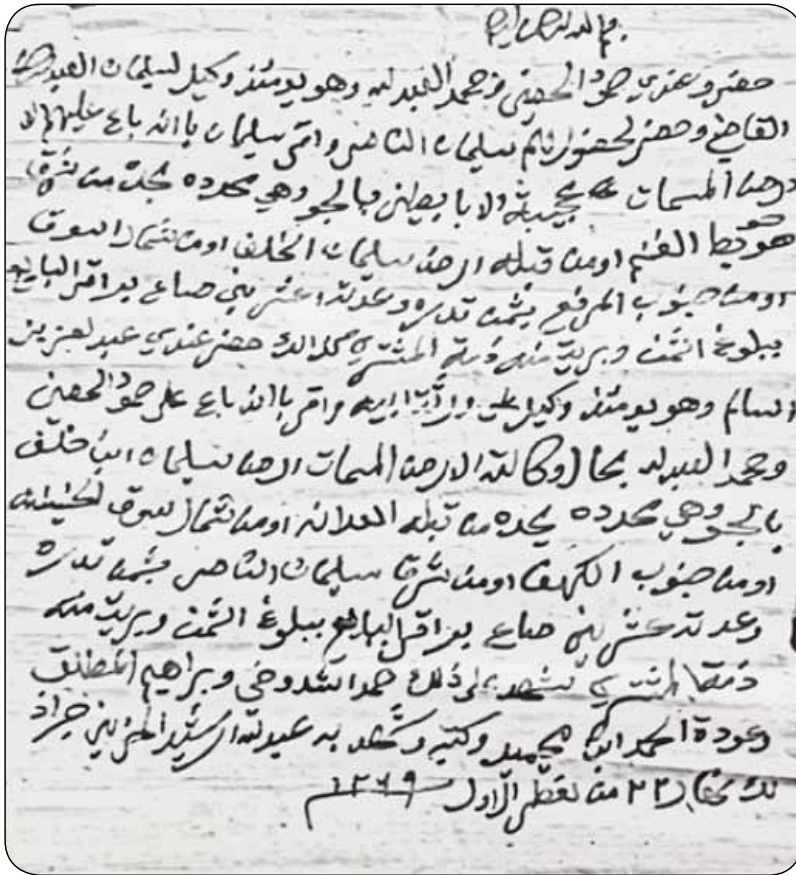 بسم الله الرحمن الرحيم
حضر وعندي حمود الحصين وحمد العبدالله وهو يومئذ وكيل لسليمان العبد
القاضي وحضر لحضورهم سليمان الناصر واقر سليمان باانه باع عليهم
ارضه المسمات بالجو وهي محدده يحده من شرق
حويط الغنم اومن قبله ارض سليمان الخلف اومن شمال السوق
اومن جنوب المرفع بثمن قدره وعدته اعشرين صاع بر اقر البايع
ببلوغ الثمن وبريت منه ذمة المشتري كذالك حضر عندي عبدالعزيز
السالم وهو يومئذ وكيل واقر باانه باع على حمود الحصين
وحمد العبدالله بحال وكالته الارض المسمات ارض سليمان ابن خلف
بالجو وهي محدده يحده من قبله اومن شمال سوق
اومن جنوب الكهف اومن شرق سليمان الناصر بثمن قدره
وعدته عشرين صاع بر اقر البايع ببلوغ الثمن وبريت منه
ذمة المشتري شهد على ذلك حمد الشدوخي وبراهيم المطلق
وعودة الحمد ابن محيميد وكتبه وشهد به عبدالله الرشيد
٢٢ من الاول ١٢٦٩